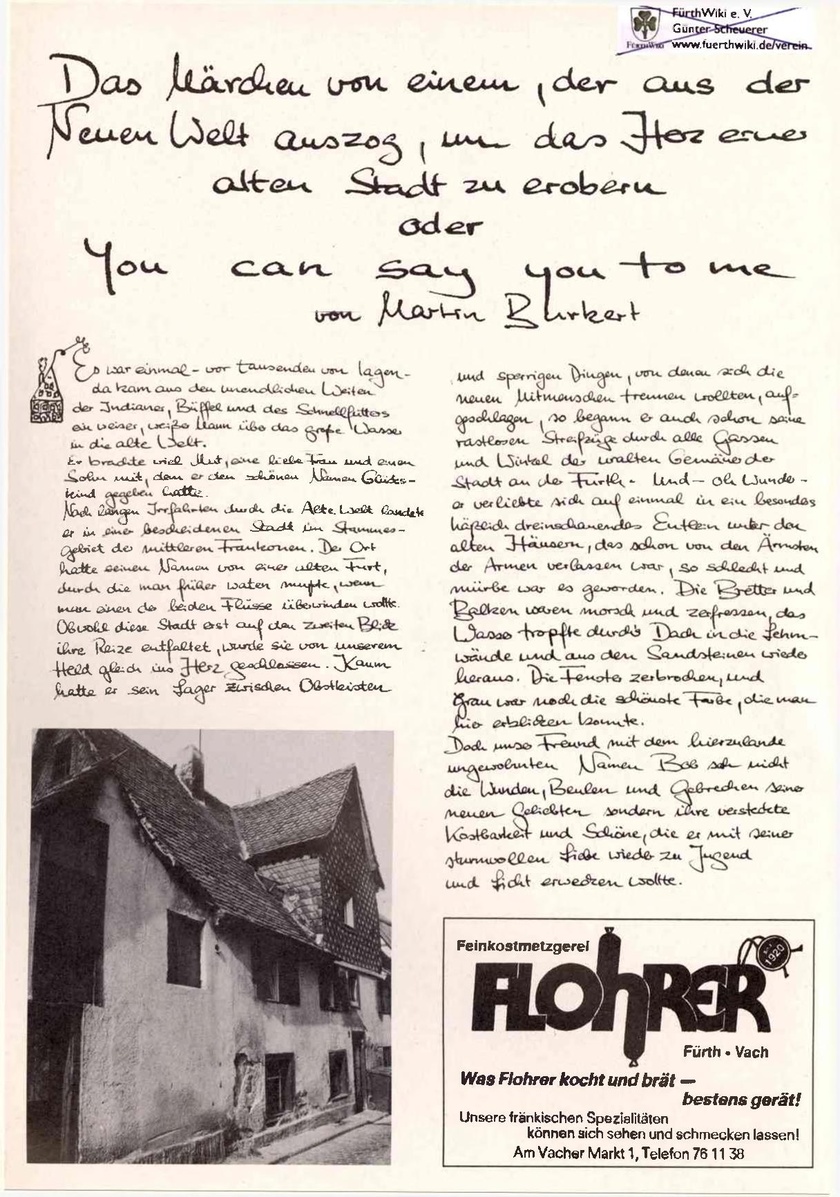 FürthWiki e. V.
Günter Scheuerer
www.fuerthwiki.de/verein
FürthWiki
Das Märchen von einem, der aus der
Neuen Welt auszog, um das Herz einer
alten Stadt zu erobern
oder
You can say you to me
von Martin Burkert
Es war einmal – vor tausenden von Tagen –
da kam aus den unendlichen Weiten
der Indianer, Büffel und des Schnellfutters
ein weiser, weißer Mann über das große Wasser
in die alte Welt.
Er brachte viel Mut, eine liebe Frau und einen
Sohn mit, dem er den schönen Namen Glücks-
kind gegeben hatte.
Nach langen Irrfahrten durch die Alte Welt landete
er in einer bescheidenen Stadt im Stammes-
gebiet der mittleren Frankonen. Der Ort
hatte seinen Namen von einer alten Furt,
durch die man früher waten mußte, wenn
man einen der beiden Flüsse überwinden wollte.
Obwohl diese Stadt erst auf den zweiten Blick
ihre Reize entfaltet, wurde sie von unserem
Held gleich ins Herz geschlossen. Kaum
hatte er sein Lager zwischen Obstkeisten
und sperrigen Dingen, von denen sich die
neuen Mitmenschen trennen wollten, auf-
geschlagen, so begann er auch schon seine
rastlosen Streifzüge durch alle Gassen
und Winkel der uralten Gemäuer der
Stadt an der Fürth. Und – oh Wunder –
er verliebte sich auf einmal in ein besonders
häßlich dreinschauendes Entlein unter den
alten Häusern, das schon von den Ärmsten
der Armen verlassen war, so schlecht und
mürbe war es geworden. Die Bretter und
Balken waren morsch und zerfressen, das
Wasser tropfte durch's Dach in die Lehm-
wände und aus den Sandsteinen wieder
heraus. Die Fenster zerbrochen, und
grau war noch die schönste Farbe, die man
hier erblicken konnte.
Doch unser Freund mit dem hierzulande
ungewohnten Namen Bob sah nicht
die Wunden, Beulen und Gebrechen seiner
neuen Geliebten sondern ihre versteckte
Kostbarkeit und Schöne, die er mit seiner
sturmvollen Liebe wieder zu Jugend
und Licht erwecken wollte.
Feinkostmetzgerei
FLOhRER
1920
Fürth • Vach
Was Flohrer kocht und brät —
bestens gerät!
Unsere fränkischen Spezialitäten
können sich sehen und schmecken lassen!
Am Vacher Markt 1, Telefon 76 11 38